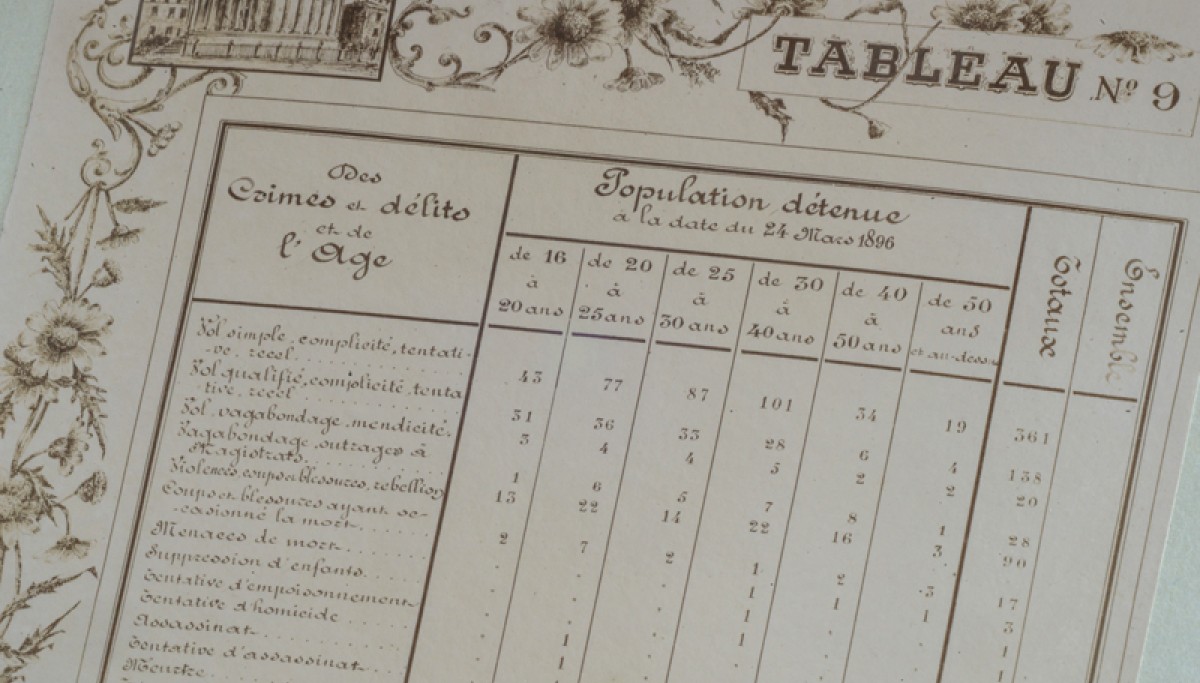 TABLEAU Nº 9
Des
Crimes et délits
et de
l'Age
Population détenue
à la date du 24 Mars 1896
de 16 à 20 ans
de 20 à 25 ans
de 25 à 30 ans
de 30 à 40 ans
de 40 à 50 ans
de 50 ans et au-dessus
Totaux
Ensemble
Vol simple, complicité, tentati-
-ve, recel. 43 77 87 101 34 19 361
Vol qualifié, complicité, tenta
tive, recel 31 36 33 28 6 4 138
Vol, vagabondage, mendicité. 3 4 4 5 2 2 20
Vagabondage, outrages à
Magistrats. 1 6 5 7 8 1 28
Violences, coups et blessures, rebellion 13 22 14 22 16 3 90
Coups et blessures ayant oc-
-casionné la mort. 2 7 2 1 2 3 17
Menaces de mort. . . . 1 1 1 3
Suppression d'enfants. . . . 1 1
Tentative d'empoisonnement. . . . 1 1
Tentative d'homicide . 1
Assassinat . 1
Tentative d'assassinat
Meurtre